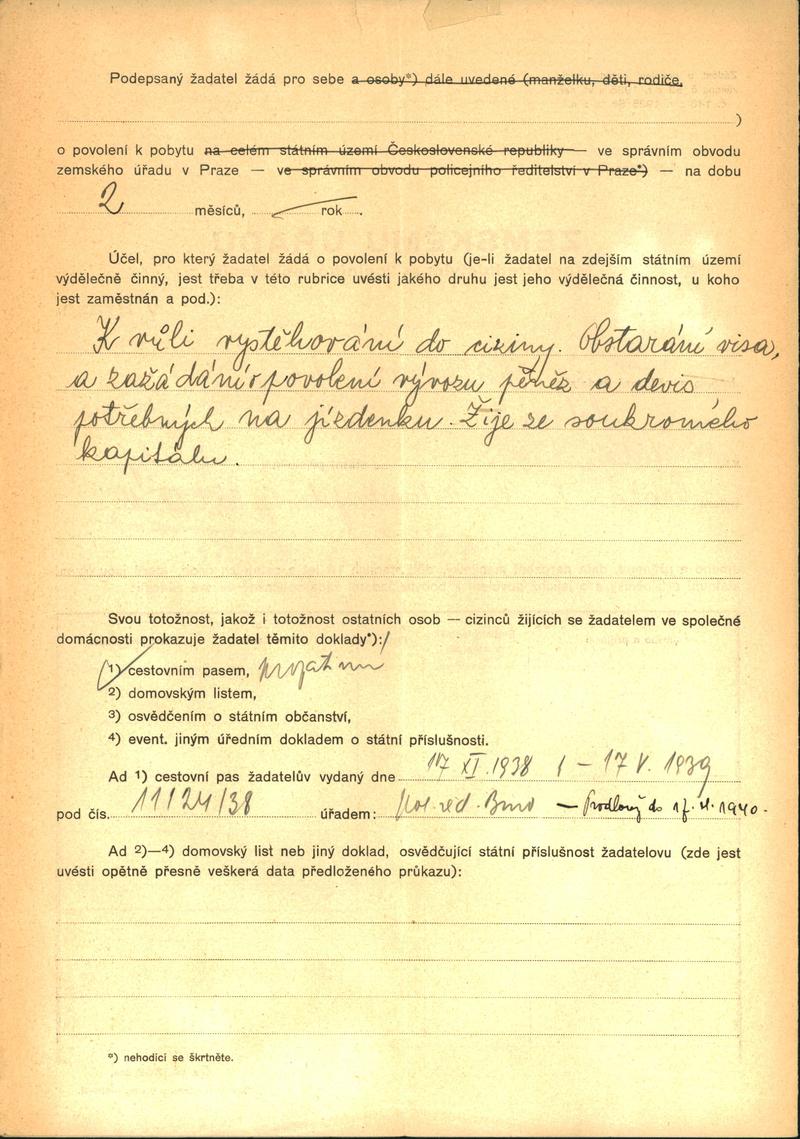 Podepsaný žadatel žádá pro sebe a osoby*) dále uvedené (manželku, děti, rodiče,
)
o povolení k pobytu na celém státním území Československé republiky — ve správním obvodu
zemského úřadu v Praze — ve správním obvodu policejního ředitelství v Praze*) — na dobu
2 měsíců, rok
Účel, pro který žadatel žádá o povolení k pobytu (je-li žadatel na zdejším státním území
výdělečně činný, jest třeba v této rubrice uvésti jakého druhu jest jeho výdělečná činnost, u koho
jest zaměstnán a pod.):
K vůli vystěhování do ciziny. Obstarání visa,
a zažádání o povolení vývozu peněz a devis
potřebných na jízdenku. Žije ze soukromého
kapitálu.
Svou totožnost, jakož i totožnost ostatních osob — cizinců žijících se žadatelem ve společné
domácnosti prokazuje žadatel těmito doklady*):
1) cestovním pasem,
2) domovským listem,
3) osvědčením o státním občanství,
4) event. jiným úředním dokladem o státní příslušnosti.
Ad 1) cestovní pas žadatelův vydaný dne 17 XI. 1938 – 17 V. 1939
pod čís. 11124/38 úřadem: Pol. řed. Brno — Prodloužený do 1940.
Ad 2)—4) domovský list neb jiný doklad, osvědčující státní příslušnost žadatelovu (zde jest
uvésti opětně přesně veškerá data předloženého průkazu):
*) nehodící se škrtněte.